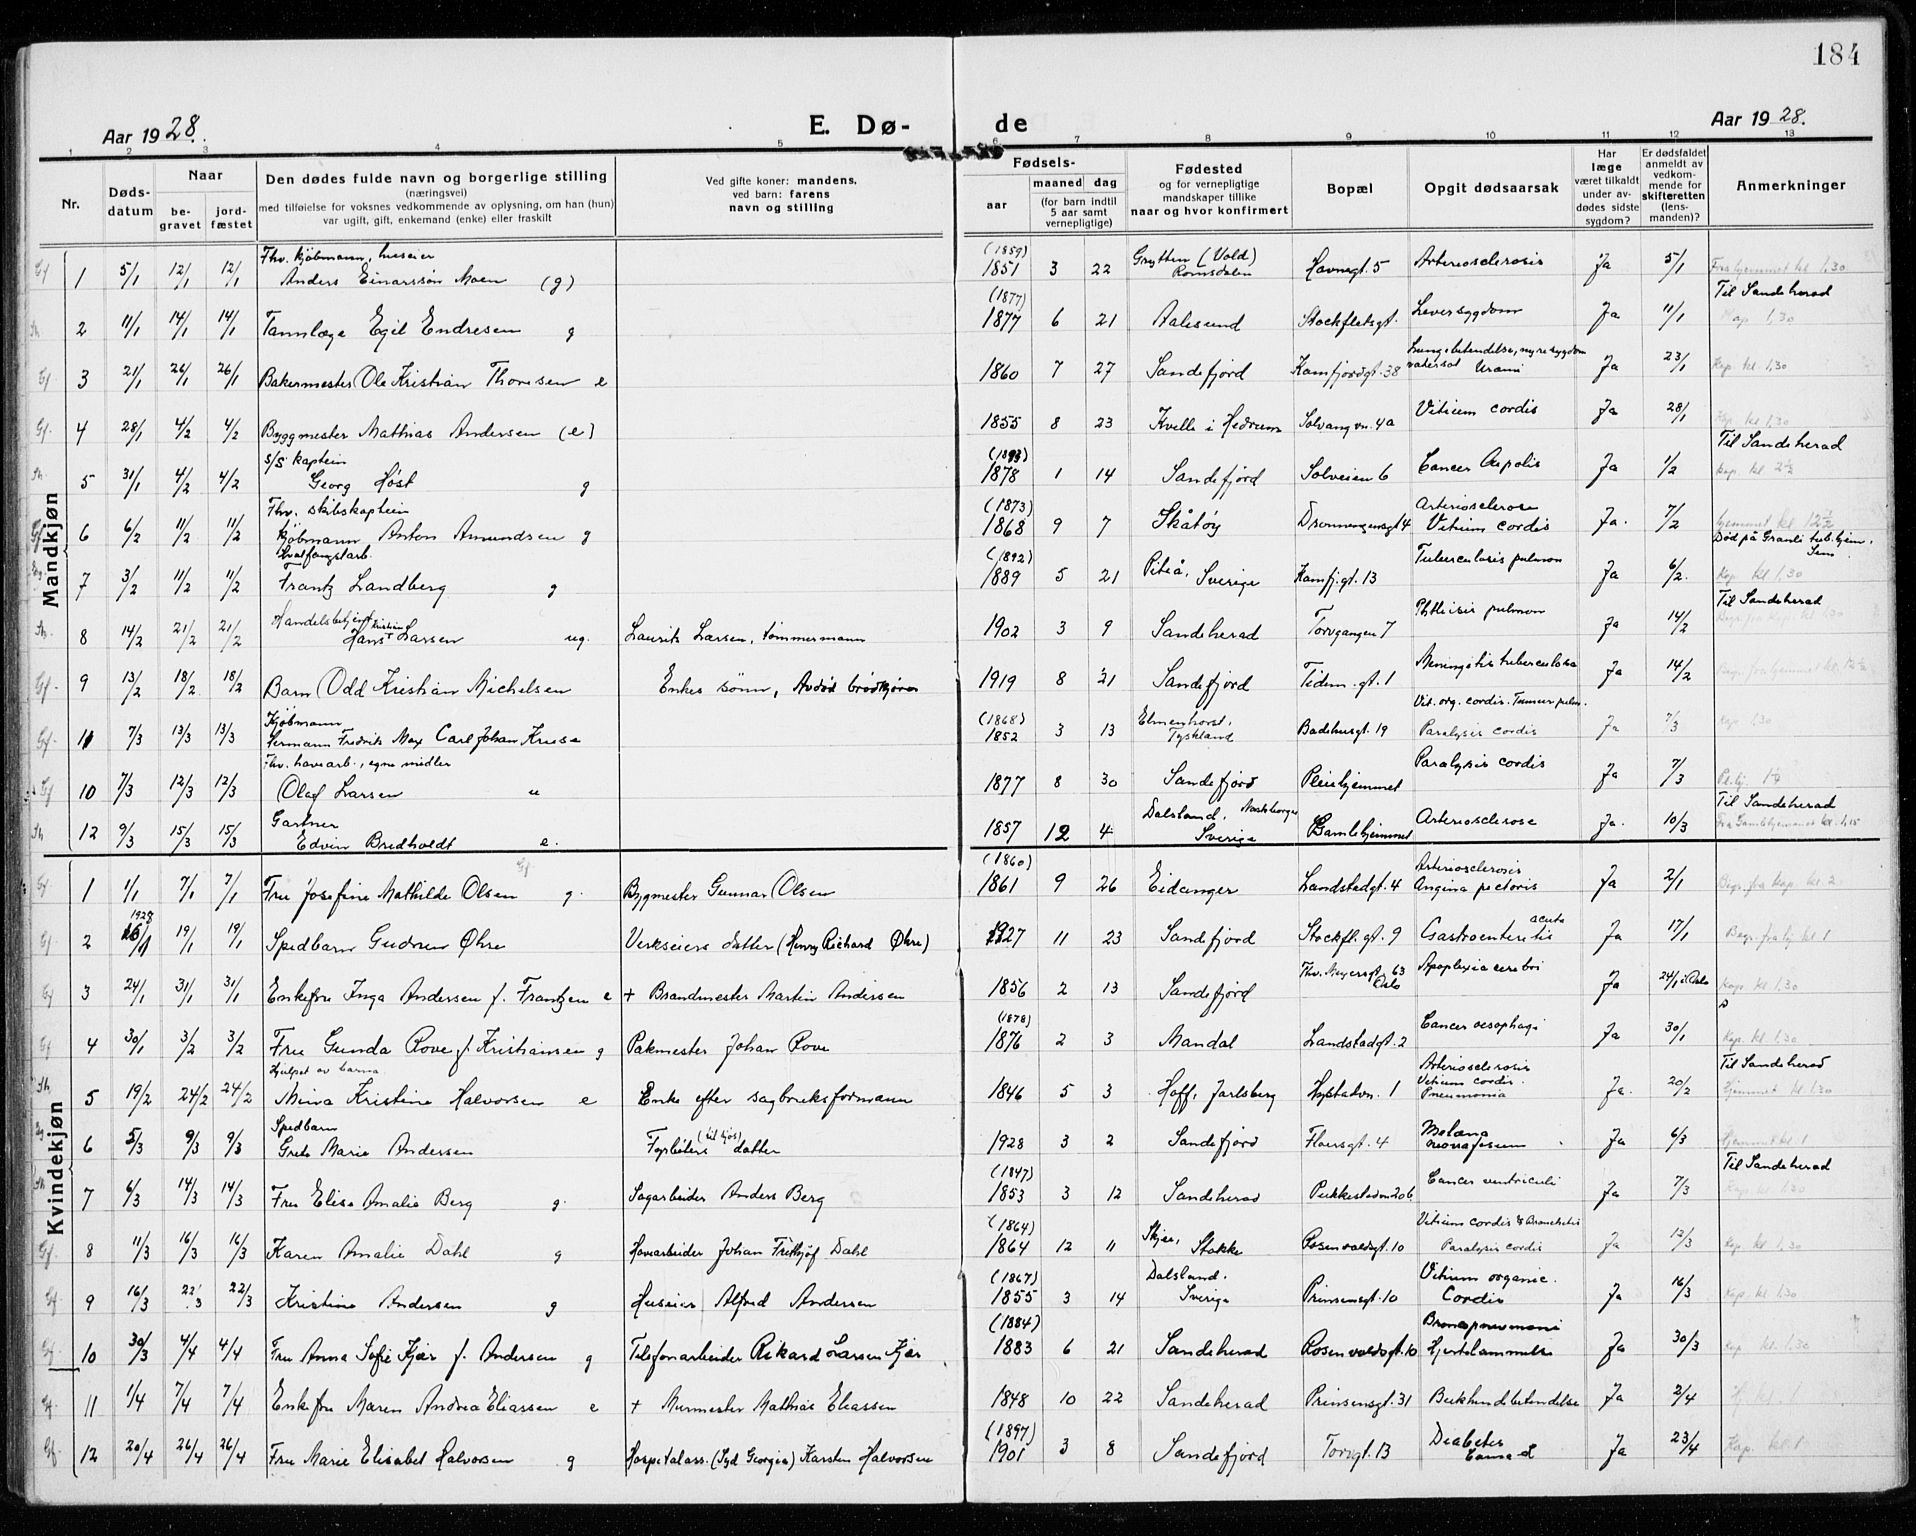 184
Aar 1928. E. Dø- de Aar 1928.
1 2 3 4 5 6 7 8 9 10 11 12 13
Nr. Døds-datum Naar be-gravet jord-fæstet Den dødes fulde navn og borgerlige stilling (næringsvei) med tilføielse for voksnes vedkommende av oplysning, om han (hun) var ugift, gift, enkemand (enke) eller fraskilt Ved gifte koner: mandens, ved barn: farens navn og stilling Fødsels- aar maaned dag (for barn indtil 5 aar samt vernepligtige) Fødested og for vernepligtige mandskaper tillike naar og hvor konfirmert Bopæl Opgit dødsaarsak Har læge været tilkaldt under av-dødes sidste sygdom? Er dødsfaldet anmeldt av vedkom-mende for skifteretten (lens-manden)? Anmerkninger
Mandkjøn
Gf 1 5/1 12/1 12/1 Fhv. kjøbmann, huseier Anders Einarssøn Moen (g) (1859) 1851 3 22 Grytten (Vold) Romsdalen Havnegt. 5 Arteriosclerosis Ja 5/1 Fra hjemmet kl 1,30
Sh. 2 11/1 14/1 14/1 Tannlæge Egil Endresen g (1877) 1877 6 21 Aalesund Stockfletsgt. Leversygdom Ja 11/1 Til Sandeherad Kap. 1,30
Gf 3 21/1 26/1 26/1 Bakermester Ole Kristian Thoresen e 1860 7 27 Sandefjord Kamfjordgt. 38 Lungebetendelse, nyresygdom Urami Ja 23/1 Kap. kl. 1,30
Gf. 4 28/1 4/2 4/2 Byggmester Mathias Andersen (e) 1855 8 23 Kvelle i Hedrum Solvangvn. 4a Vitium cordis Ja 28/1 Kap. kl 1,30
Sh. 5 31/1 4/2 4/2 S/S kaptein Georg Høst g 1878 1 14 Sandefjord Solveien 6 Cancer Ja 1/2 Til Sandeherad Kap. kl 2½
Gf 6 6/2 11/2 11/2 Fhv. skibskaptein kjøbmann Anton Amundsen g (1873) 1868 9 7 Skåtøy Dronningensgt 4 Arteriosclerose Vitium cordis Ja. 7/2 hjemmet kl. 12½
7 3/2 11/2 11/2 Hvalfangstarb. Frantz Landberg g (1892) 1889 5 21 Piteå, Sverige Kamfj.gt. 13 Tuberculosis pulmon Ja 6/2. Død på Granli tub.hjem, Sem Kap. kl 1,30
Sh. 8 14/2 21/2 21/2 Handelsbetjent Hans Kristian Larsen ug. Laurits Larsen, tømmermann 1902 3 9 Sandeherad Torvgangen 7 Phthisis pulmon Ja 14/2 Til Sandeherad Begr. fra Kap. kl 1,30
Gf. 9 13/2 18/2 18/2 Barn Odd Kristian Michelsen Enkes sønn, Avdød brødkjører 1919 8 21 Sandefjord Tidem.gt. 1 Meningitis tuberculosa Ja 14/2 Begr. fra hjemmet kl. 12½
Gf. 11 7/3 13/3 13/3 Kjøbmann Hermann Fredrik Max Carl Johan Kruse (1868) 1852 3 13 Elmenhorst, Tyskland Badehusgt. 19 Vit. org. cordis. Tumor pulm. Paralysis cordis Ja 7/3 Kap. 1,30
Gf 10 7/3 12/3 12/3 Fhv. havearb., egne midler Olaf Larsen u 1877 8 30 Sandefjord Pleiehjemmet Paralysis cordis Ja 7/3
Sh 12 9/3 15/3 15/3 Gartner Edvin Bredholdt e. 1857 12 4 Dalsland, Sverige Gamlehjemmet Arteriosclerose Ja. 10/3 Til Sandeherad Fra Gamlehjemmet kl. 1,15
Kvindekjøn
Gf 1 1/1 7/1 7/1 Fru Josefine Mathilde Olsen g. Bygmester Gunnar Olsen (1860) 1861 9 26 Eidanger Landstadgt. 4 Arteriosclerosis Angina pectoris Ja 2/1 Begr. fra kap. kl. 2
Gf. 2 1928 16/1 19/1 19/1 Spedbarn Gudrun Øhre Verkseiers datter (Henry Richard Øhre) 1927 11 23 Sandefjord Stockfl.gt. 9 Gastroenteritis acuta Ja 17/1 Begr. fra hj kl 1
Gf 3 24/1 31/1 31/1 Enkefru Inga Andersen f. Frantzen e + Brandmester Martin Andersen 1856 2 13 Sandefjord Thv. Meyersgt. 63 Oslo Apoplexia cerebri Ja 24/1 i Oslo Kap. kl 1,30
Gf 4 30/1 3/2 3/2 Fru Gunda Rove f. Kristiansen g Pakmester Johan Rove (1878) 1876 2 3 Mandal Landstadgt. 2 Cancer oesophagi Ja 30/1 Kap. kl. 1,30
Sh 5 19/2 24/2 24/2 Hjulpet av barna Mina Kristine Halvorsen e Enke efter sagbruksformann 1846 5 3 Hoff, Jarlsberg Hystadvn. 1 Arteriosclerosis Vitium cordis. Pneumonia Ja. 20/2 Til Sandeherad Hjemmet kl 1.30
6 5/3 9/3 9/3 Spedbarn Grete Marie Andersen Fyrbøters (til sjøs) datter 1928 3 2 Sandefjord Floersgt. 4 Melæna Ja 6/3 Hjemmet kl 1
Sh 7 6/3 14/3 14/3 Fru Elise Amalie Berg g. Sagarbeider Anders Berg (1847) 1853 3 12 Sandeherad Pukkestadvn 20b Cancer ventriculi Ja 7/3 Til Sandeherad Kap. kl. 1.30
Gf. 8 11/3 16/3 16/3 Karen Amalie Dahl g Havearbeider Johan Fritjhjof Dahl (1864) 1864 12 11 Skjee, Stokke Rosenvoldsgt. 10 Vitium cordis & Bronchitis Paralysis cordis Ja 12/3 Kap. kl. 1,30
Gf 9 16/3 22/3 22/3 Kristine Andersen g Huseier Alfred Andersen (1867) 1855 3 14 Dalsland. Sverige Prinsensgt. 10 Vitium organic. Cordis Ja 16/3 Kap kl. 1.30
Gf. 10 30/3 4/4 4/4 Fru Anna Sofie Kjær f. Andersen g Telefonarbeider Rikard Larsen Kjær (1884) 1883 6 21 Sandeherad Rosenvoldsgt. 10 Bronopneumoni Hjertelammelse Ja 30/3 Kap kl. 1.30
Gf. 11 1/4 7/4 7/4 Enkefru Maren Andrea Eliassen e + Murmester Mathias Eliassen 1848 10 22 Sandeherad Prinsensgt. 31 Bukhindebetendelse Ja 2/4
Gf. 12 20/4 26/4 26/4 Fru Marie Elisabet Halvorsen g Hospitalass. (Syd Georgia) Karsten Halvorsen (1897) 1901 3 8 Sandefjord Torvgt. 13 Diabetes Ja 23/4 Kap. kl. 1